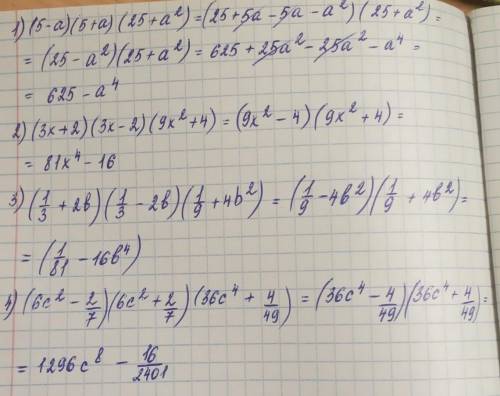 1) (5-a)(5+a)(25+a²)=(25+5a-5a-a²)(25+a²)=
=(25-a²)(25+a²)=625+25a²-25a²-a⁴=
=625-a⁴
2)(3x+2)(3x-2)(9x²+4)=(9x²-4)(9x²+4)=
=81x⁴-16
3)(1/3+2b)(1/3-2b)(1/9+4b²)=(1/9-4b²)(1/9+4b²)=
=(1/81-16b⁴)
4)(6c²-2/7)(6c²+2/7)(36c⁴+4/49)=(36c⁴-4/49)(36c⁴+4/49)=
=1296c⁸-16/2401